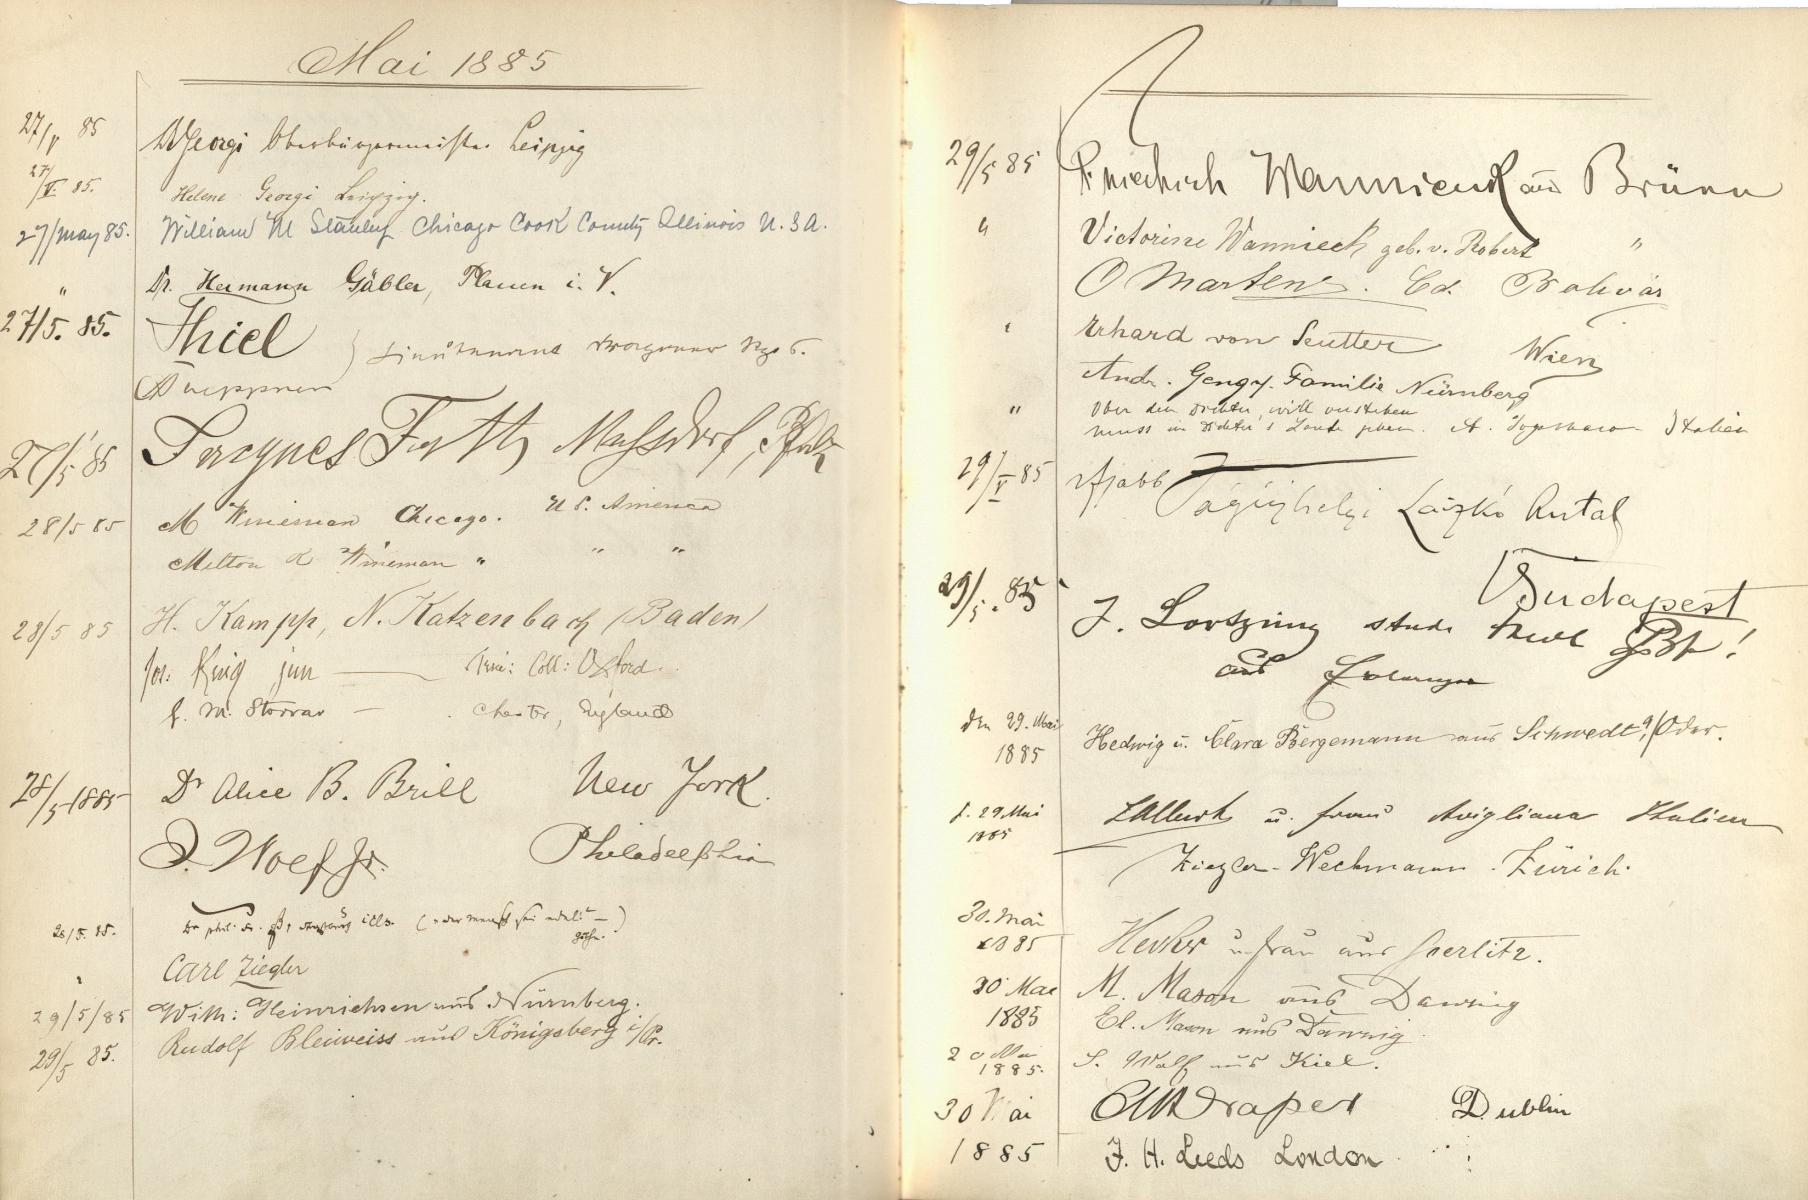 Mai 1885
27/V 85
Dr Georgi Oberbürgermeister Leipzig
27/V. 85.
Helene Georgi Leipzig.
27/May 85.
William M Chicago Cook County Illinois U. S A.
"
Dr. Hermann Gäbler, Plauen i. V.
27/5. 85.
Thiel
27/5 85
Jacques Fath, Mussdorf, Pfalz
28/5 85
M Wineman Chicago. U S. America
Milton R Wineman " " "
28/5 85
H. Kampp, N. Katzenbach (Baden)
Jos: King jun — Coll: Oxford.
J. M. Storrar — Chester, England
28/5 1885
Dr Alice B. Brill New York.
J. Wolf Jr. Philadelphia
28/5. 85.
Dr phil.
Carl Ziegler
29/5/85
Wilh: Heinrichsen aus Nürnberg.
29/5 85.
Rudolf Bleiweiss aus Königsberg i/Pr.
29/5 85
Friedrich Wannieck aus Brünn
"
Victorine Wannieck geb. v. Robert "
O Martens. Ed.
"
Erhard von Seutter Wien
Andr. Familie Nürnberg
"
Wer den Dichter will verstehen
muss in Dichter's Lande gehen. A. Italien
29/V 85
ifjabb
László Antal
Budapest
29/5. 85
J. Lortzing stud.
aus Erlangen
den 29. Mai
1885
Hedwig u. Clara Bergemann aus Schwedt a/Oder.
d. 29 Mai
1885
u. Frau Avigliana Italien
Ziegler-Weckmann. Zürich.
30. Mai
1885
u Frau aus Goerlitz.
30 Mai
1885
M. Mason aus Danzig
El. Mason aus Danzig.
1885.
S. Wolf aus Kiel.
30 Mai
1885
Draper Dublin
J. H. Leeds London